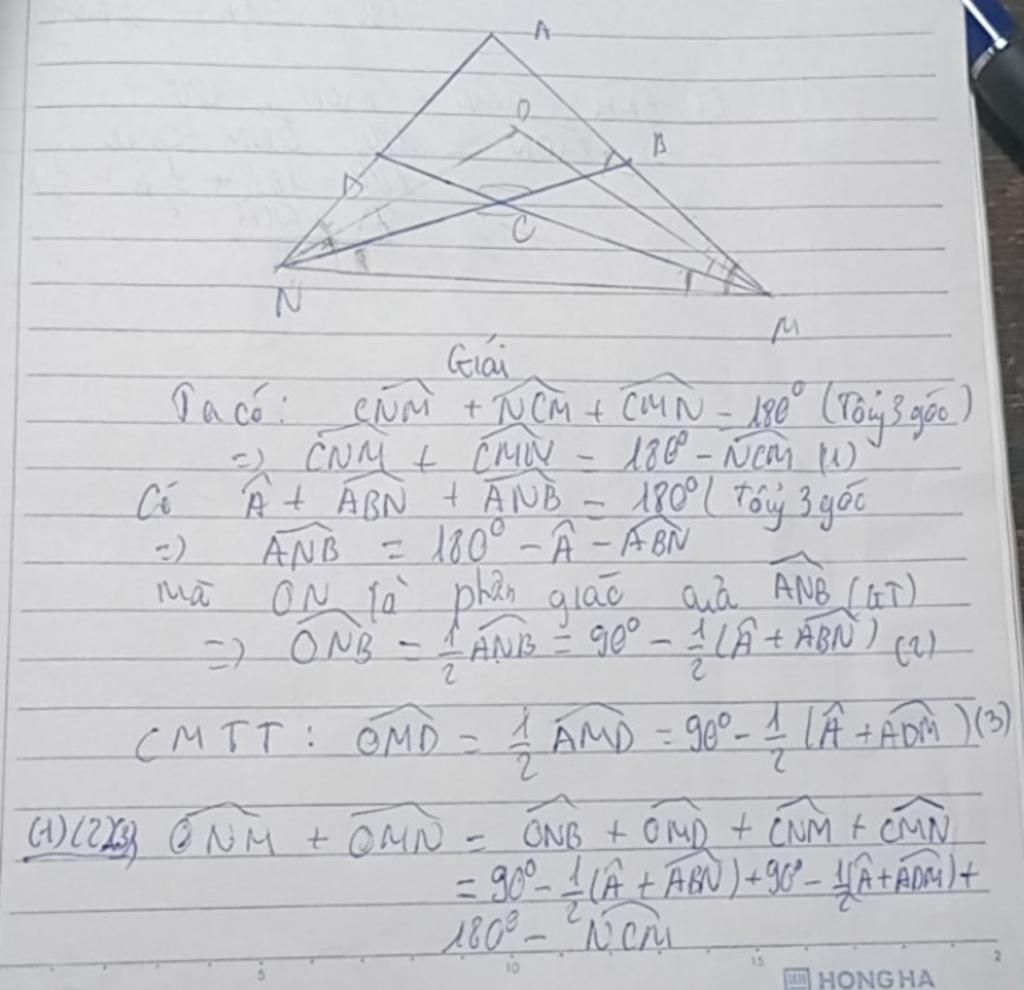 A
O
B
D
C
N
M
Giải
Ta có: \widehat{CNM} + \widehat{NCM} + \widehat{CMN} = 180° (Tổng 3 góc)
=> \widehat{CNM} + \widehat{CMN} = 180° - \widehat{NCM} (1)
Có \widehat{A} + \widehat{ABN} + \widehat{ANB} = 180° (Tổng 3 góc
=> \widehat{ANB} = 180° - \widehat{A} - \widehat{ABN}
mà ON là phân giác của \widehat{ANB} (GT)
=> \widehat{ONB} = \frac{1}{2} \widehat{ANB} = 90° - \frac{1}{2} (\widehat{A} + \widehat{ABN}) (2)
CMTT: \widehat{OMD} = \frac{1}{2} \widehat{AMD} = 90° - \frac{1}{2} (\widehat{A} + \widehat{ADM}) (3)
(1)(2)(3) \widehat{ONM} + \widehat{OMN} = \widehat{ONB} + \widehat{OMD} + \widehat{CNM} + \widehat{CMN}
= 90° - \frac{1}{2} (\widehat{A} + \widehat{ABN}) + 90° - \frac{1}{2} (\widehat{A} + \widehat{ADM}) +
180° - \widehat{NCM}
5 10 15 2
HONG HA